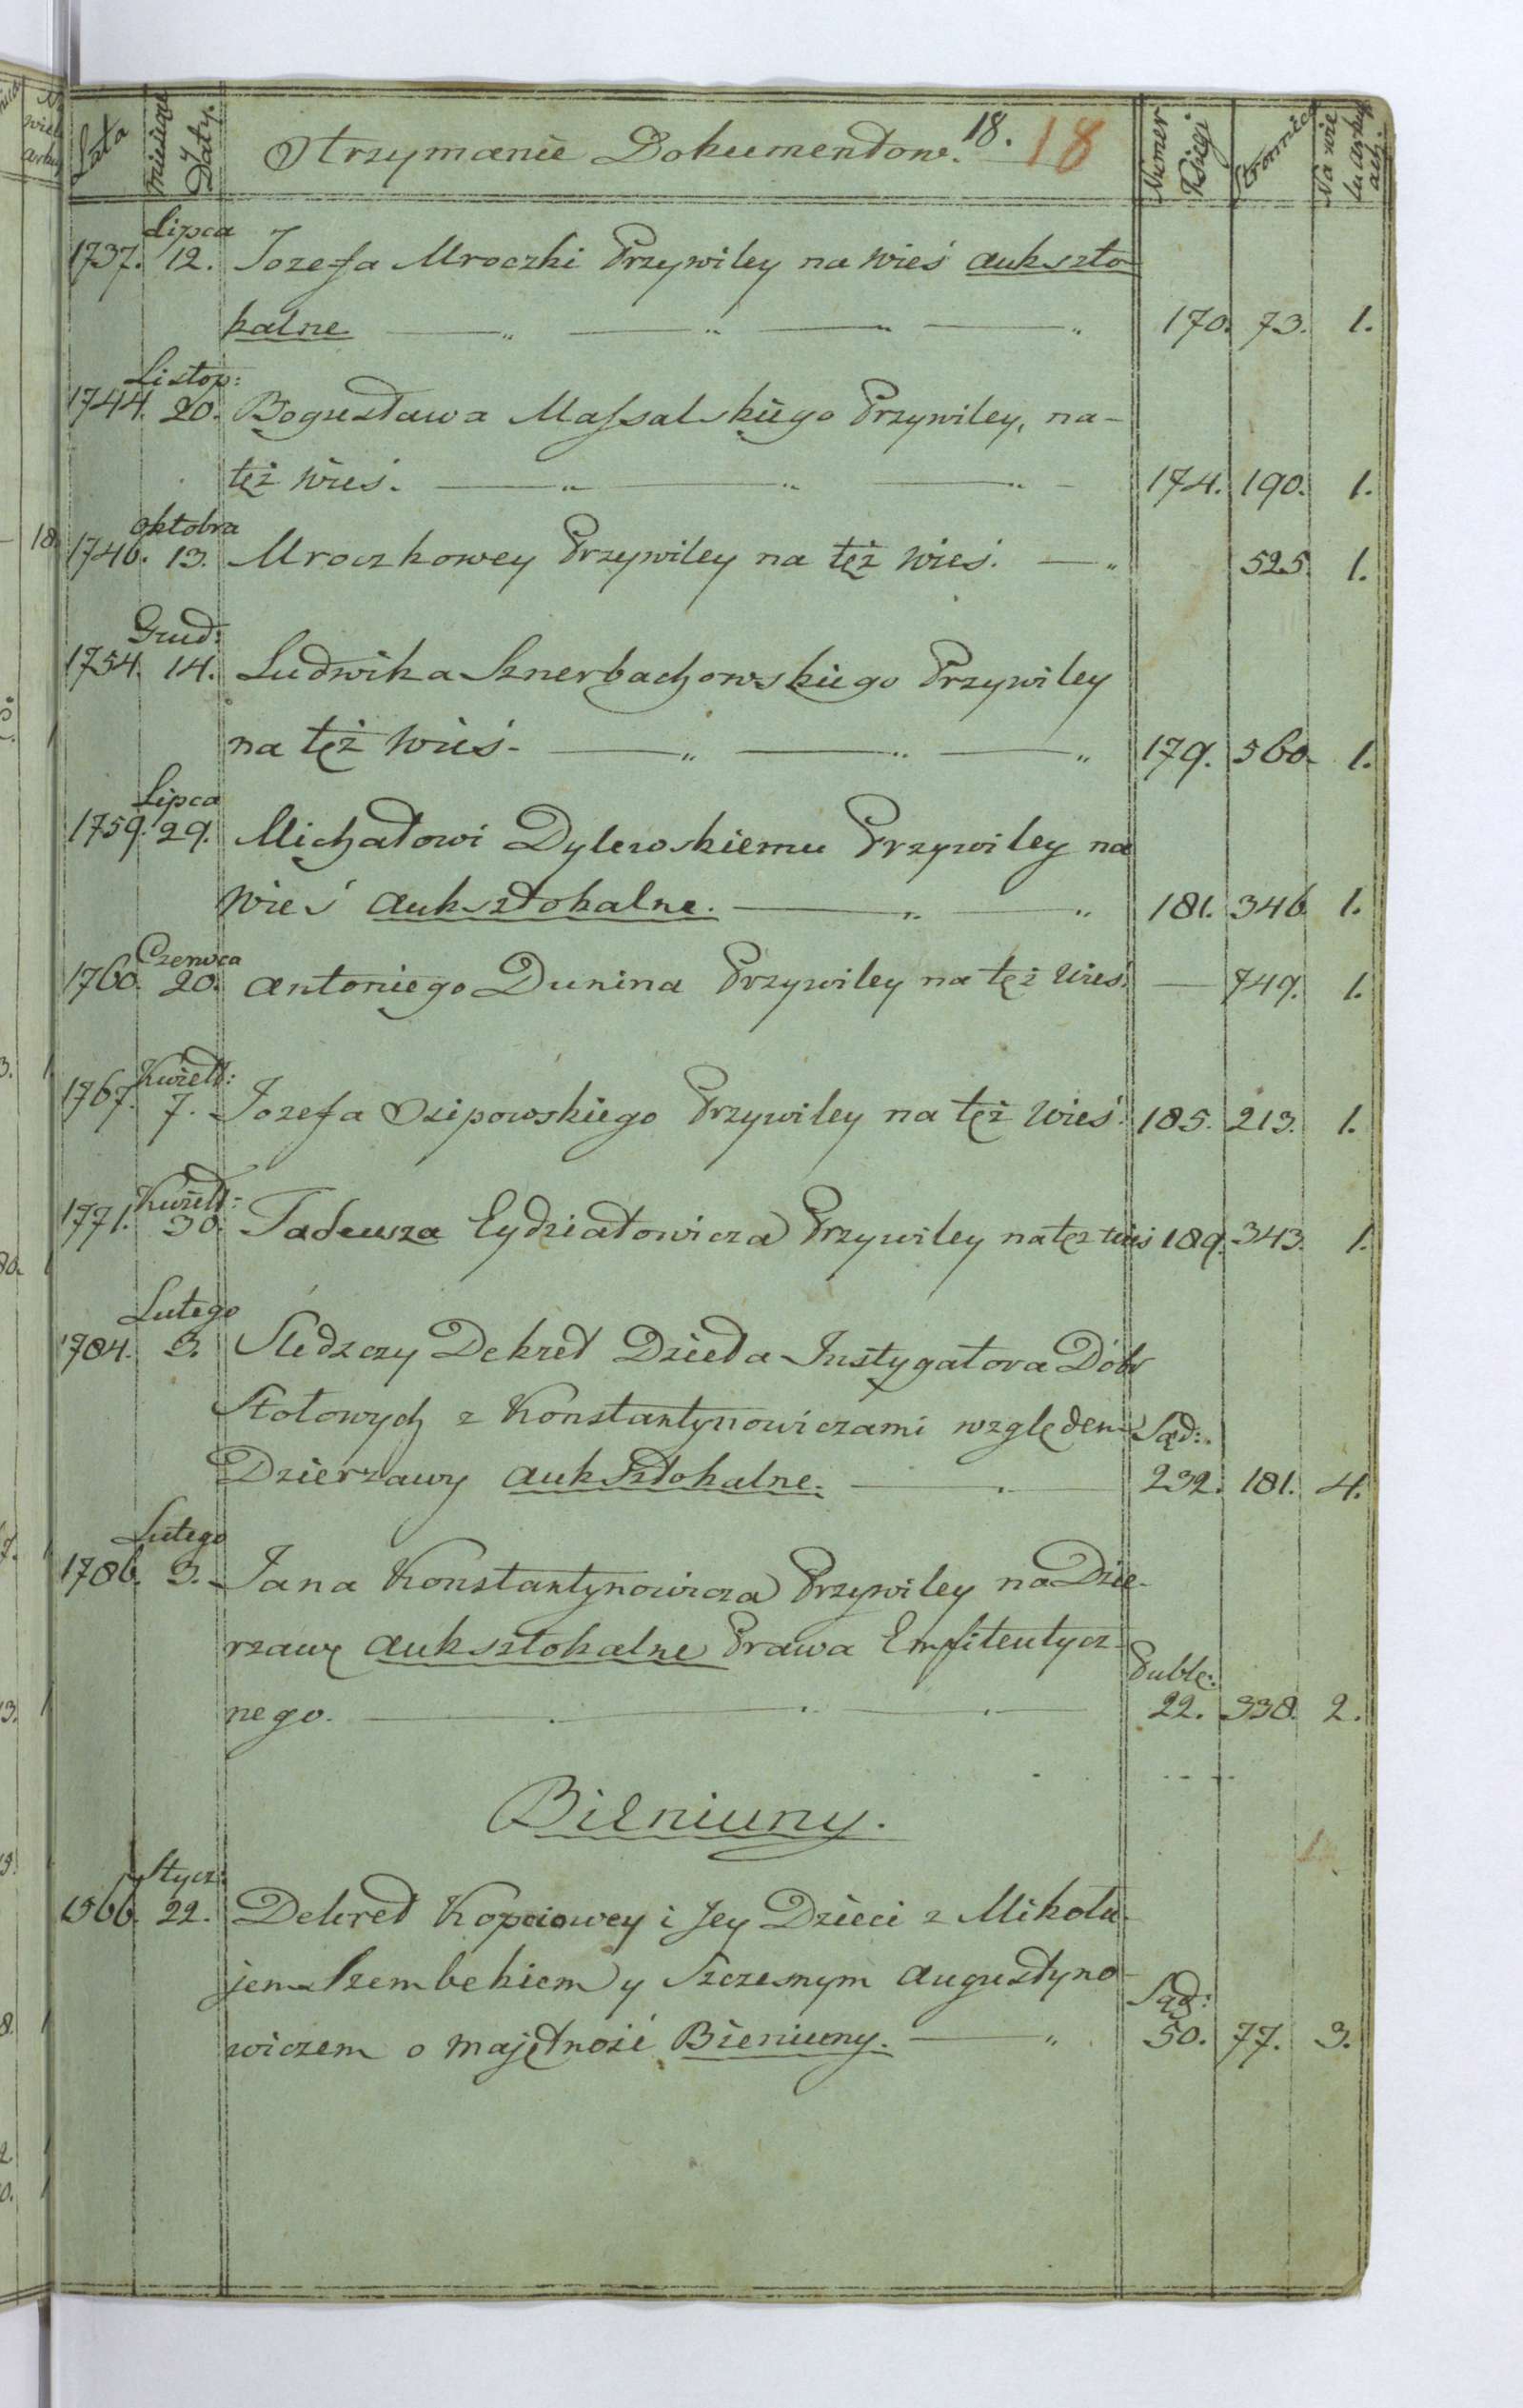 Lata miesiące y Daty. Otrzymanie Dokumentow. 18. 18 Numer Księgi Stronnica Na wielu arkuszach.
Lipca
1737. 12. Jozefa Mroczki Przywiley na Wieś aukszto-
kalne 170. 73. 1.
Listop:
1744. 20. Bogusława Massalskiego Przywiley, na-
tęż Wieś. 174. 190. 1.
Oktobra
1746. 13. Mroczkowey Przywiley na tęż Wieś. 525. 1.
Grud:
1754. 14. Ludwika Sznerbachowskiego Przywiley
na tęż Wieś. 179. 560. 1.
Lipca
1759. 29. Michałowi Dylewskiemu Przywiley na
Wieśauksztokalne. 181. 346 1.
Czerwca
1760. 20. antoniego Dunina Przywiley na tęż Wieś. 749. 1.
Kwiet:
1767. 7. Jozefa Osipowskiego Przywiley na tęż Wieś. 185. 213. 1.
Kwiet:
1771. 30. Tadeusza Eydziatowicza Przywiley na tęż Wieś 189. 343. 1.
Lutego
1784. 3. Sledzczy Dekret Dzieła Instygatora Dóbr
Stołowych z Konstantynowiczami względem Sąd:
Dzierzawy auksztokalne. 232. 181. 4.
Lutego
1786. 3. Jana Konstantynowicza Przywiley na Dzie-
rzawę auksztokalne Prawa Emfiteutycz-
Publ:
nego. 22. 338. 2.
Bieniuny.
Stycz:
1566. 22. Dekret Kopciowey i Jey Dzieci z Mikoła-
jem Szembekiem y Szczesnym augustyno-
Sąd:
wiczem o majętność Bieniuny. 50. 77. 3.